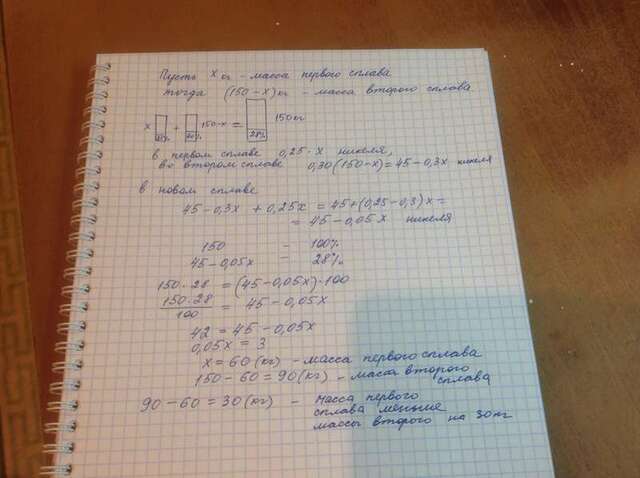 Пусть x кг - масса первого сплава
тогда (150-x) кг - масса второго сплава
x + 150-x = 150 кг
28%
в первом сплаве 0,25·x никеля,
во втором сплаве 0,30(150-x)=45-0,3x никеля
в новом сплаве
45-0,3x + 0,25x = 45+(0,25-0,3)x=
= 45-0,05x никеля
150 - 100%
45-0,05x - 28%
150·28 = (45-0,05x)·100
150·28/100 = 45-0,05x
42 = 45-0,05x
0,05x = 3
x = 60 (кг) - масса первого сплава
150-60 = 90 (кг) - масса второго
сплава
90-60 = 30 (кг) - масса первого
сплава меньше
массы второго на 30 кг